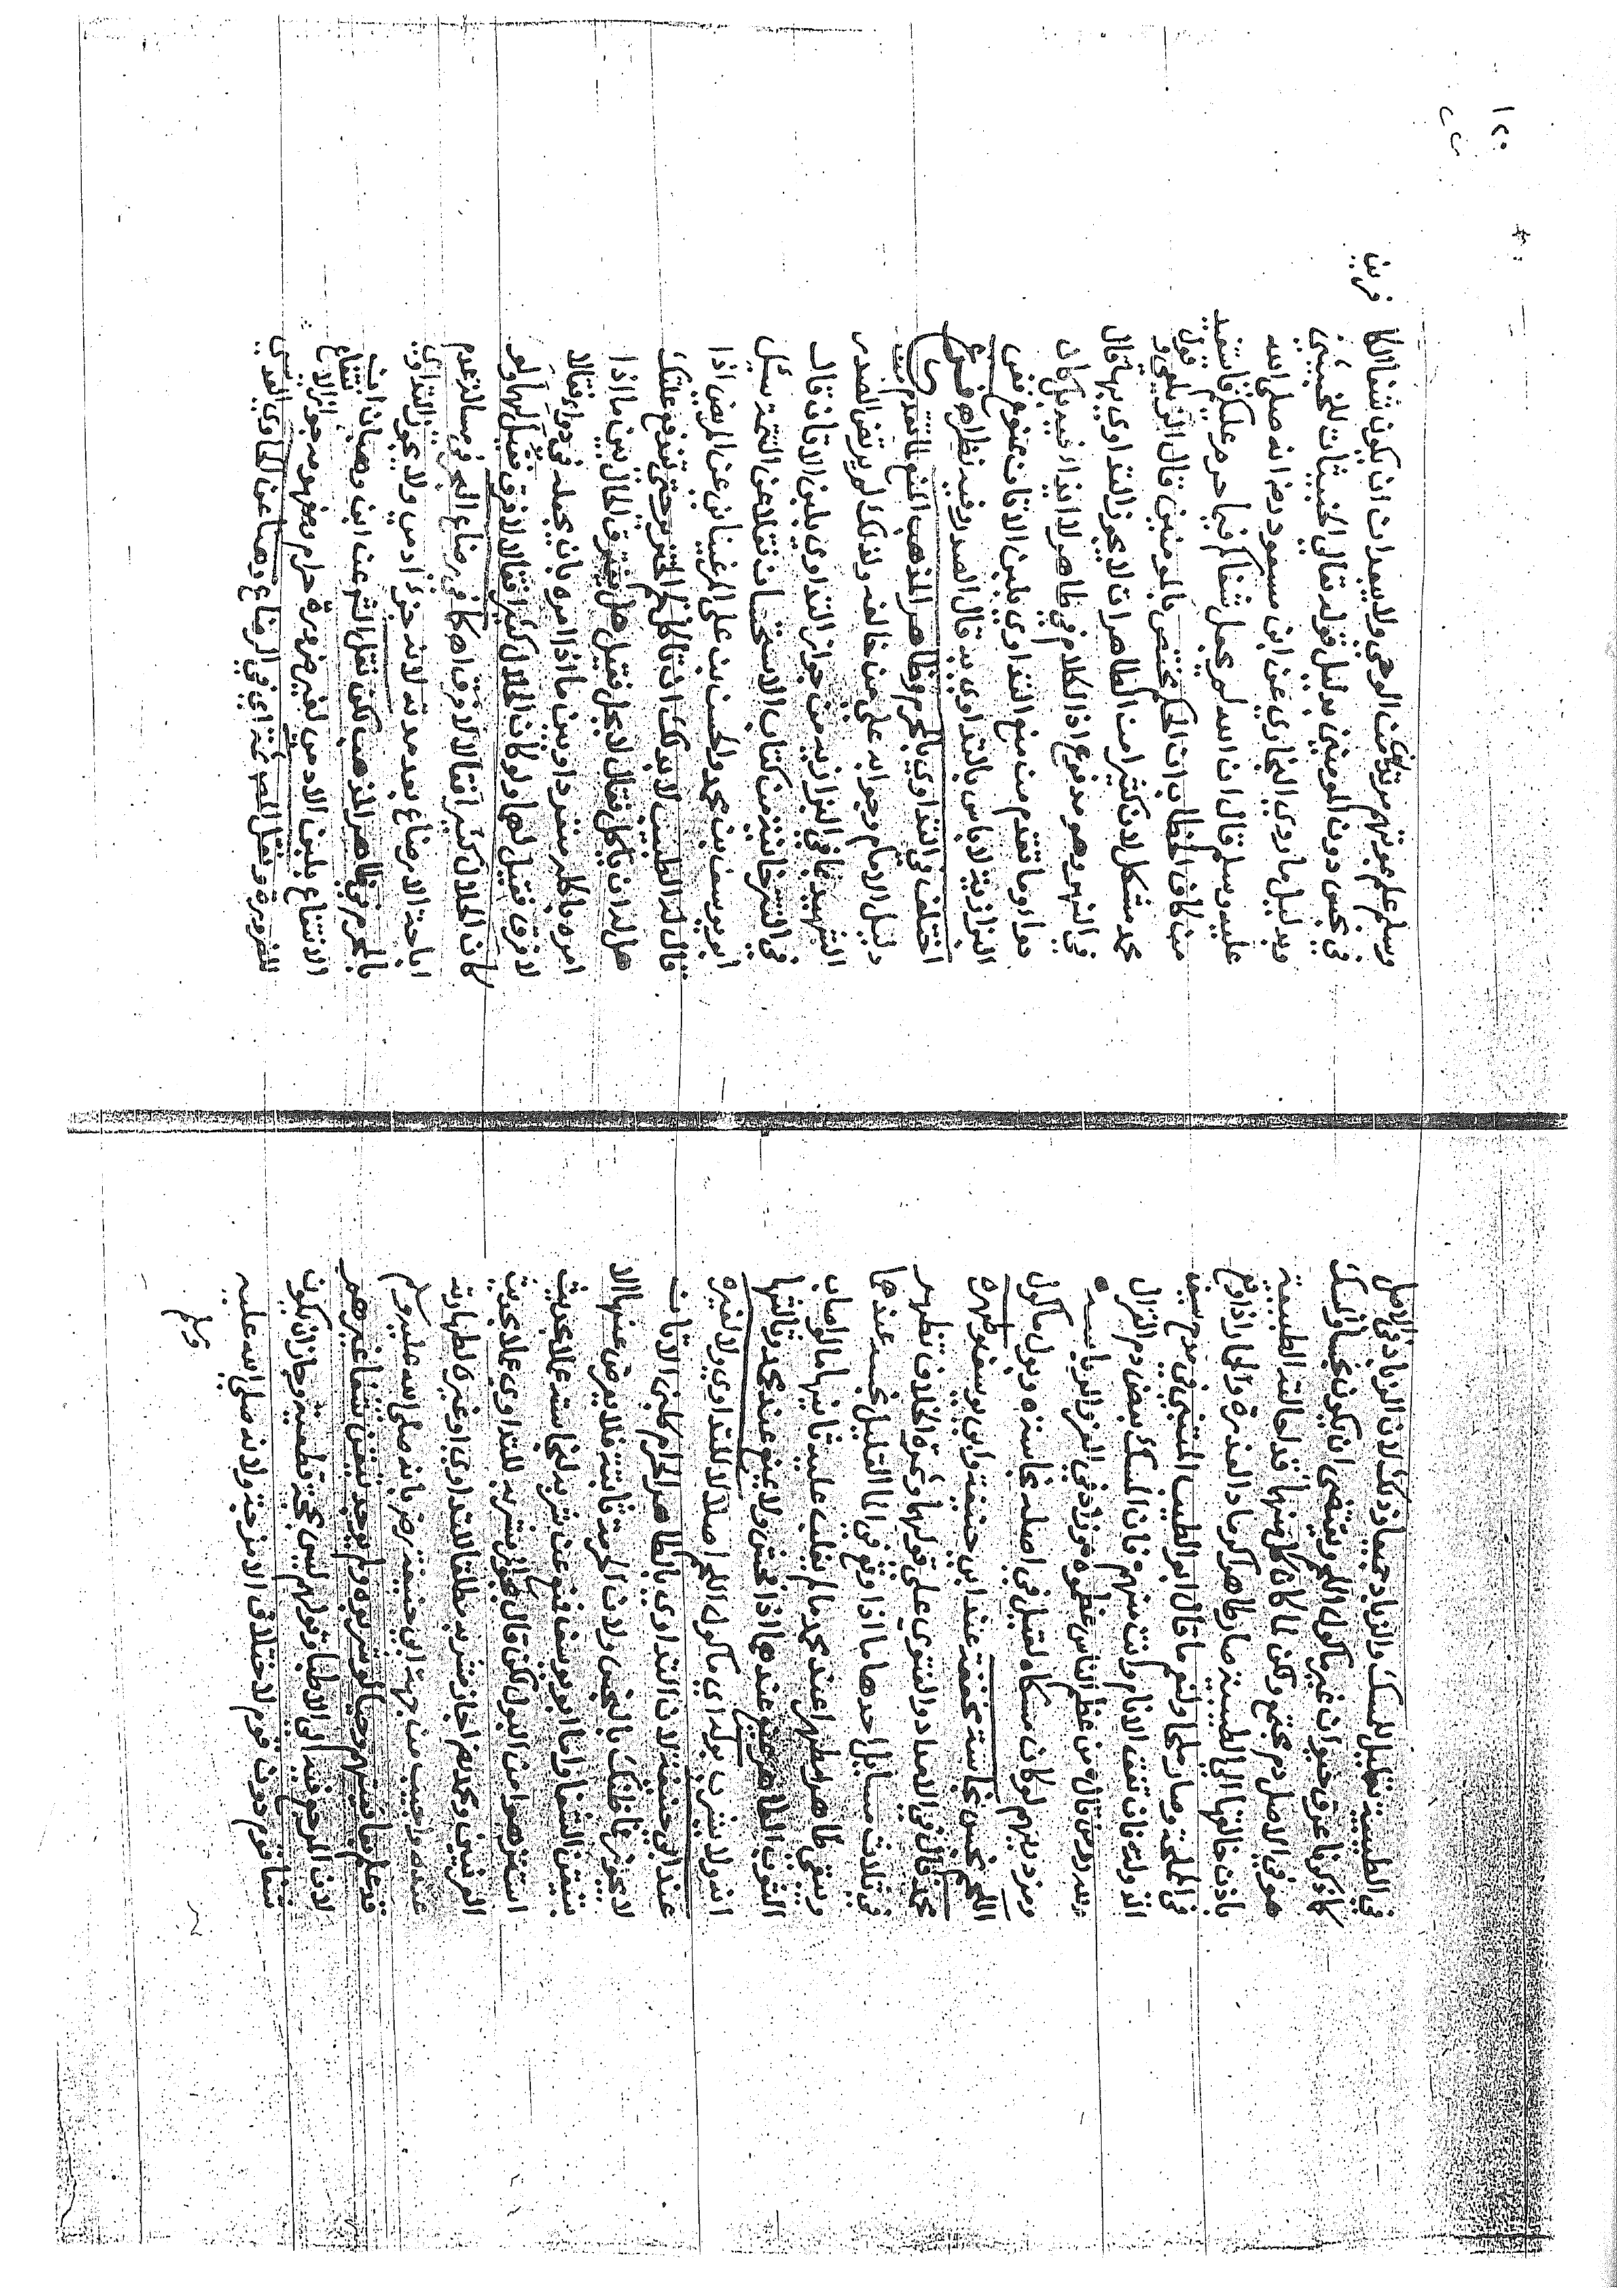 في الطيبية تعليل للمسك والزباد جميعا وذلك لان الزباد في الاصل
كما ذكرنا عرق حيوان غير ماكول اللحم ويقتضي ان يكون نجسا والمسك
هو في الاصل دم مجتمع ولكن لما كان كل منهما قد احالته الطبيعة
باذن خالقها الى الطيبية صار طاهرا كرماد العذرة والحمار اذا وقع
في المملحة وصار ملحا ولنعم ما قال ابو الطيب المتنبي في مدح سيف
الدولة فان تفق الانام وانت منهم فان المسك بعض دم الغزال
لله در من قال من عظم الناس عظموه فزاد في العز والرياسه
ومن وبول ماكول
اللحم نجس نجاسة مخففة عند ابي حنيفة وابي يوسف وطهره
محمد قال في العماد والفتوى على قولهما وثمرة الخلاف تظهر
في ثلاث مسايل احدها ما اذا وقع في الما القليل نجسه عندهما
ويبقى طاهرا مطهرا عند محمد ما لم يغلب عليه ثانيها ما لو اصاب
الثوب الطاهر عندهما اذا فحش ولا يمنع عند محمد وثالثها
انه ولا يشرب بول ذي ماكول اللحم اصلا لا للتداوي ولا لغيره
عند ابي حنيفة لان التداوي بالطاهر الحرام كلبن الاتان
لا يجوز فما ظنك بالنجس ولان الحرمة ثابتة فلا يعرض عنها الا
بتيقن الشفا واما ابو يوسف فمنع عن شربه لنجاسته عملا بحديث
استنزهوا من البول لكن قال بجواز شربه للتداوي عملا بحديث
العرنيين ومحمد اجاز شربه مطلقا للتداوي او غيره لطهارته
عنده واجيب من جهة ابي حنيفة رض بانه صلى الله عليه وسلم
قد علم شفاهم فيه وحيا ولم يوجد تيقن شفا غيرهم
لان المرجع فيه الى الاطبا وقولهم ليس بحجة قطعية وجاز ان يكون
شفا قوم دون قوم لاختلاف الامزجة ولانه صلى الله عليه
وسلم
وسلم علم موتهم مرتدين من الوحي ولا يبعد ان يكون شفا الكافرين
في نجس دون المومنين بدليل قوله تعالى الخبيثات للخبيثين
وبدليل ما روى البخاري عن ابن مسعود رض انه صلى الله
عليه وسلم قال ان الله لم يجعل شفاكم فيما حرم عليكم فاستفيد
من كاف الخطاب ان الحكم مختص بالمومنين قال الزيلعي وقول
محمد مشكل لان كثيرا من الطاهرات لا يجوز التداوي بها قال
في النهر وهو مدفوع اذ الكلام في طاهر لا ايذا فيه بل كان
دواء وما تقدم من منع التداوي بلبن الاتان ممنوع ففي
البزازية لا باس بالتداوي به قال الصدر وفيه نظر اه
اختلف في التداوي بالمحرم وظاهر المذهب المنع لما تقدم من
دليل الامام وجوابه على من خالفه ولذلك لم يرتض الصدر
الشهيد ما في البزازية من جواز التداوي بلبن الاتان قال
في التترخانية من كتاب الاستحسان نقلا عن التتمة سئل
ابو يوسف بن محمد والحسن بن علي المرغيناني عن المريض اذا
قال له الطبيب لا بد لك ان تاكل لحم الخنزير حتى يدفع علتك
هل له ان ياكل فقال لا يحل فقيل هل يفترق الحال بين ما اذا
امره باكله منفردا وبين ما اذا امره بان يجعله في دواء فقالا
لا فرق فقيل لهما ولو كان الحلال اكثر فقالا لا فرق فقيل لهما ولو
كان الحلال كثيرا فقالا لا فرق اه وكما في رضاع البحر في مسالة عدم
اباحة الارضاع بعد مدته لانه جزء ادمي ولا يجوز التداوي
بالمحرم في ظاهر المذهب لكن نقل الشرنبلالي عن ابن وهبان ان
الانتفاع بلبن الادمي لغير ضرورة حرام ومفهومه جواز الانتفاع
للضرورة ونقل المصنف ثمة اي في الرضاع وهنا عن الحاوي القدسي